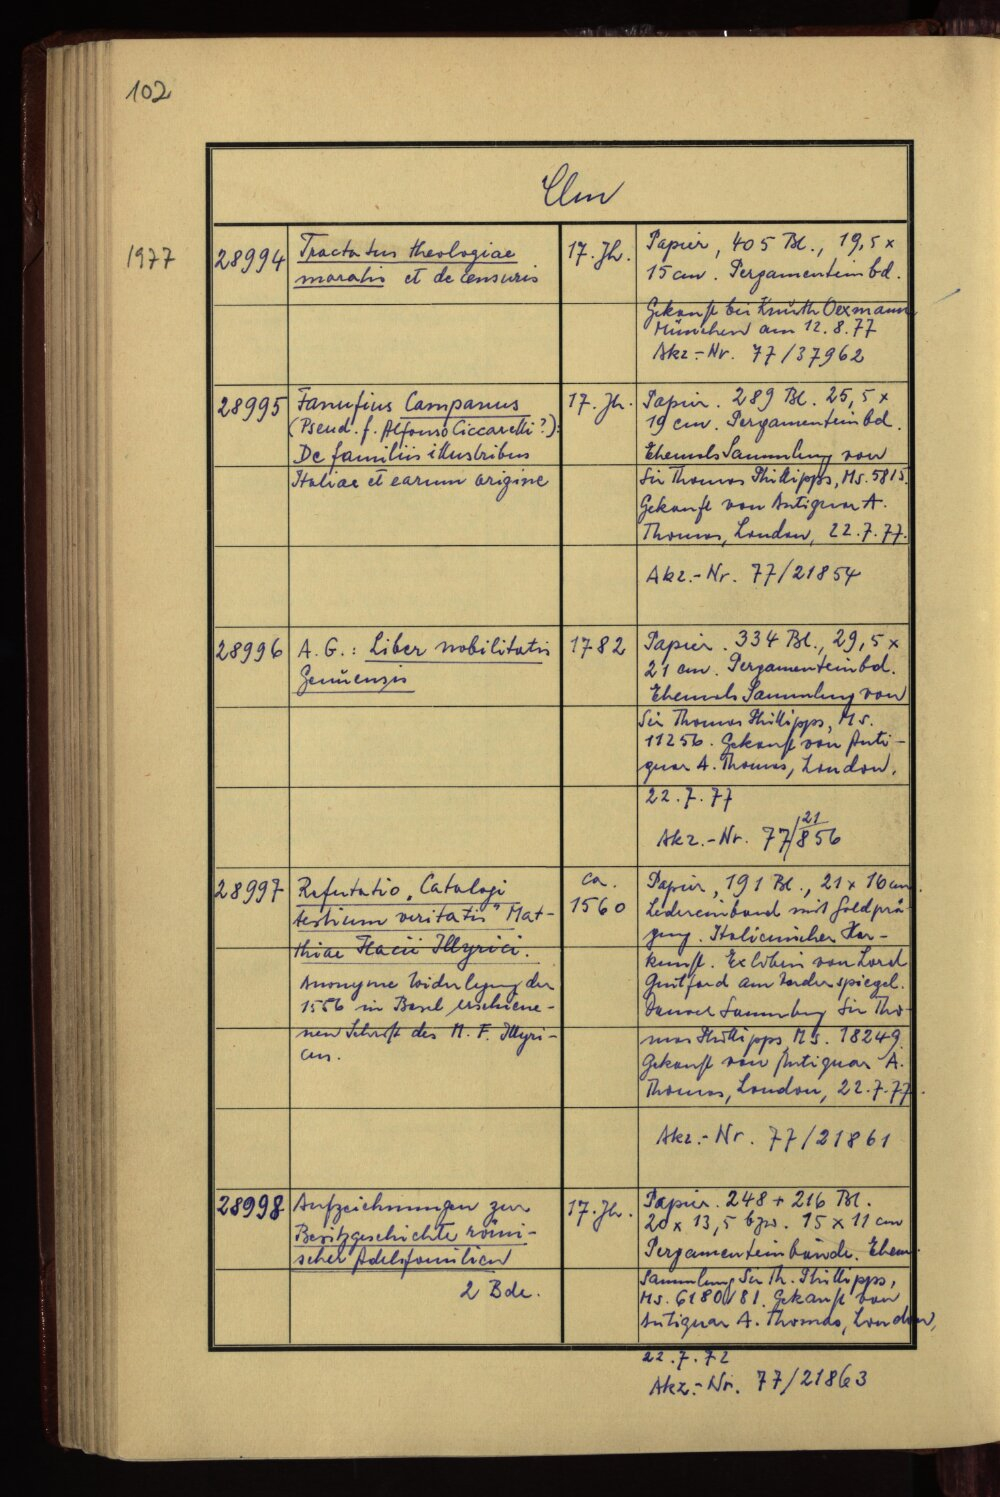 102
Clm
1977
28994
Tractatus theologiae
moralis et de censuris
17. Jh.
Papier, 405 Bl., 19,5 x
15 cm. Pergamenteinbd.
Gekauft bei Knuth Oexmann
München am 12.8.77
Akz.-Nr. 77/37962
28995
Fanufius Campanus
(Pseud. f. Alfonso Ciccarelli?):
De familiis illustribus
Italiae et earum origine
17. Jh.
Papier. 289 Bl. 25,5 x
19 cm. Pergamenteinbd.
Ehemals Sammlung von
Sir Thomas Phillipps, Ms. 5815.
Gekauft von Antiquar A.
Thomas, London, 22.7.77.
Akz.-Nr. 77/21854
28996
A. G.: Liber nobilitatis
Genuensis
1782
Papier. 334 Bl., 29,5 x
21 cm. Pergamenteinbd.
Ehemals Sammlung von
Sir Thomas Phillipps, Ms.
11256. Gekauft von Anti-
quar A. Thomas, London,
22.7.77
Akz.-Nr. 77/21856
28997
Refutatio „Catalogi
testium veritatis" Mat-
thiae Flacii Illyrici.
Anonyme Widerlegung der
1556 in Basel erschiene-
nen Schrift des M. F. Illyri-
cus.
ca.
1560
Papier, 191 Bl., 21 x 16 cm.
Ledereinband mit Goldprä-
gung. Italienischer Her-
kunft. Exlibris von Lord
Guilford am Vorderspiegel.
Danach Sammlung Sir Tho-
mas Phillipps, Ms. 18249.
Gekauft von Antiquar A.
Thomas, London, 22.7.77.
Akz.-Nr. 77/21861
28998
Aufzeichnungen zur
Besitzgeschichte römi-
scher Adelsfamilien
2 Bde.
17. Jh.
Papier. 248 + 216 Bl.
20 x 13,5 bzw. 15 x 11 cm
Pergamenteinbände. Ehem.
Sammlung Sir Th. Phillipps,
Ms. 6180/81. Gekauft von
Antiquar A. Thomas, London,
22.7.72
Akz.-Nr. 77/21863